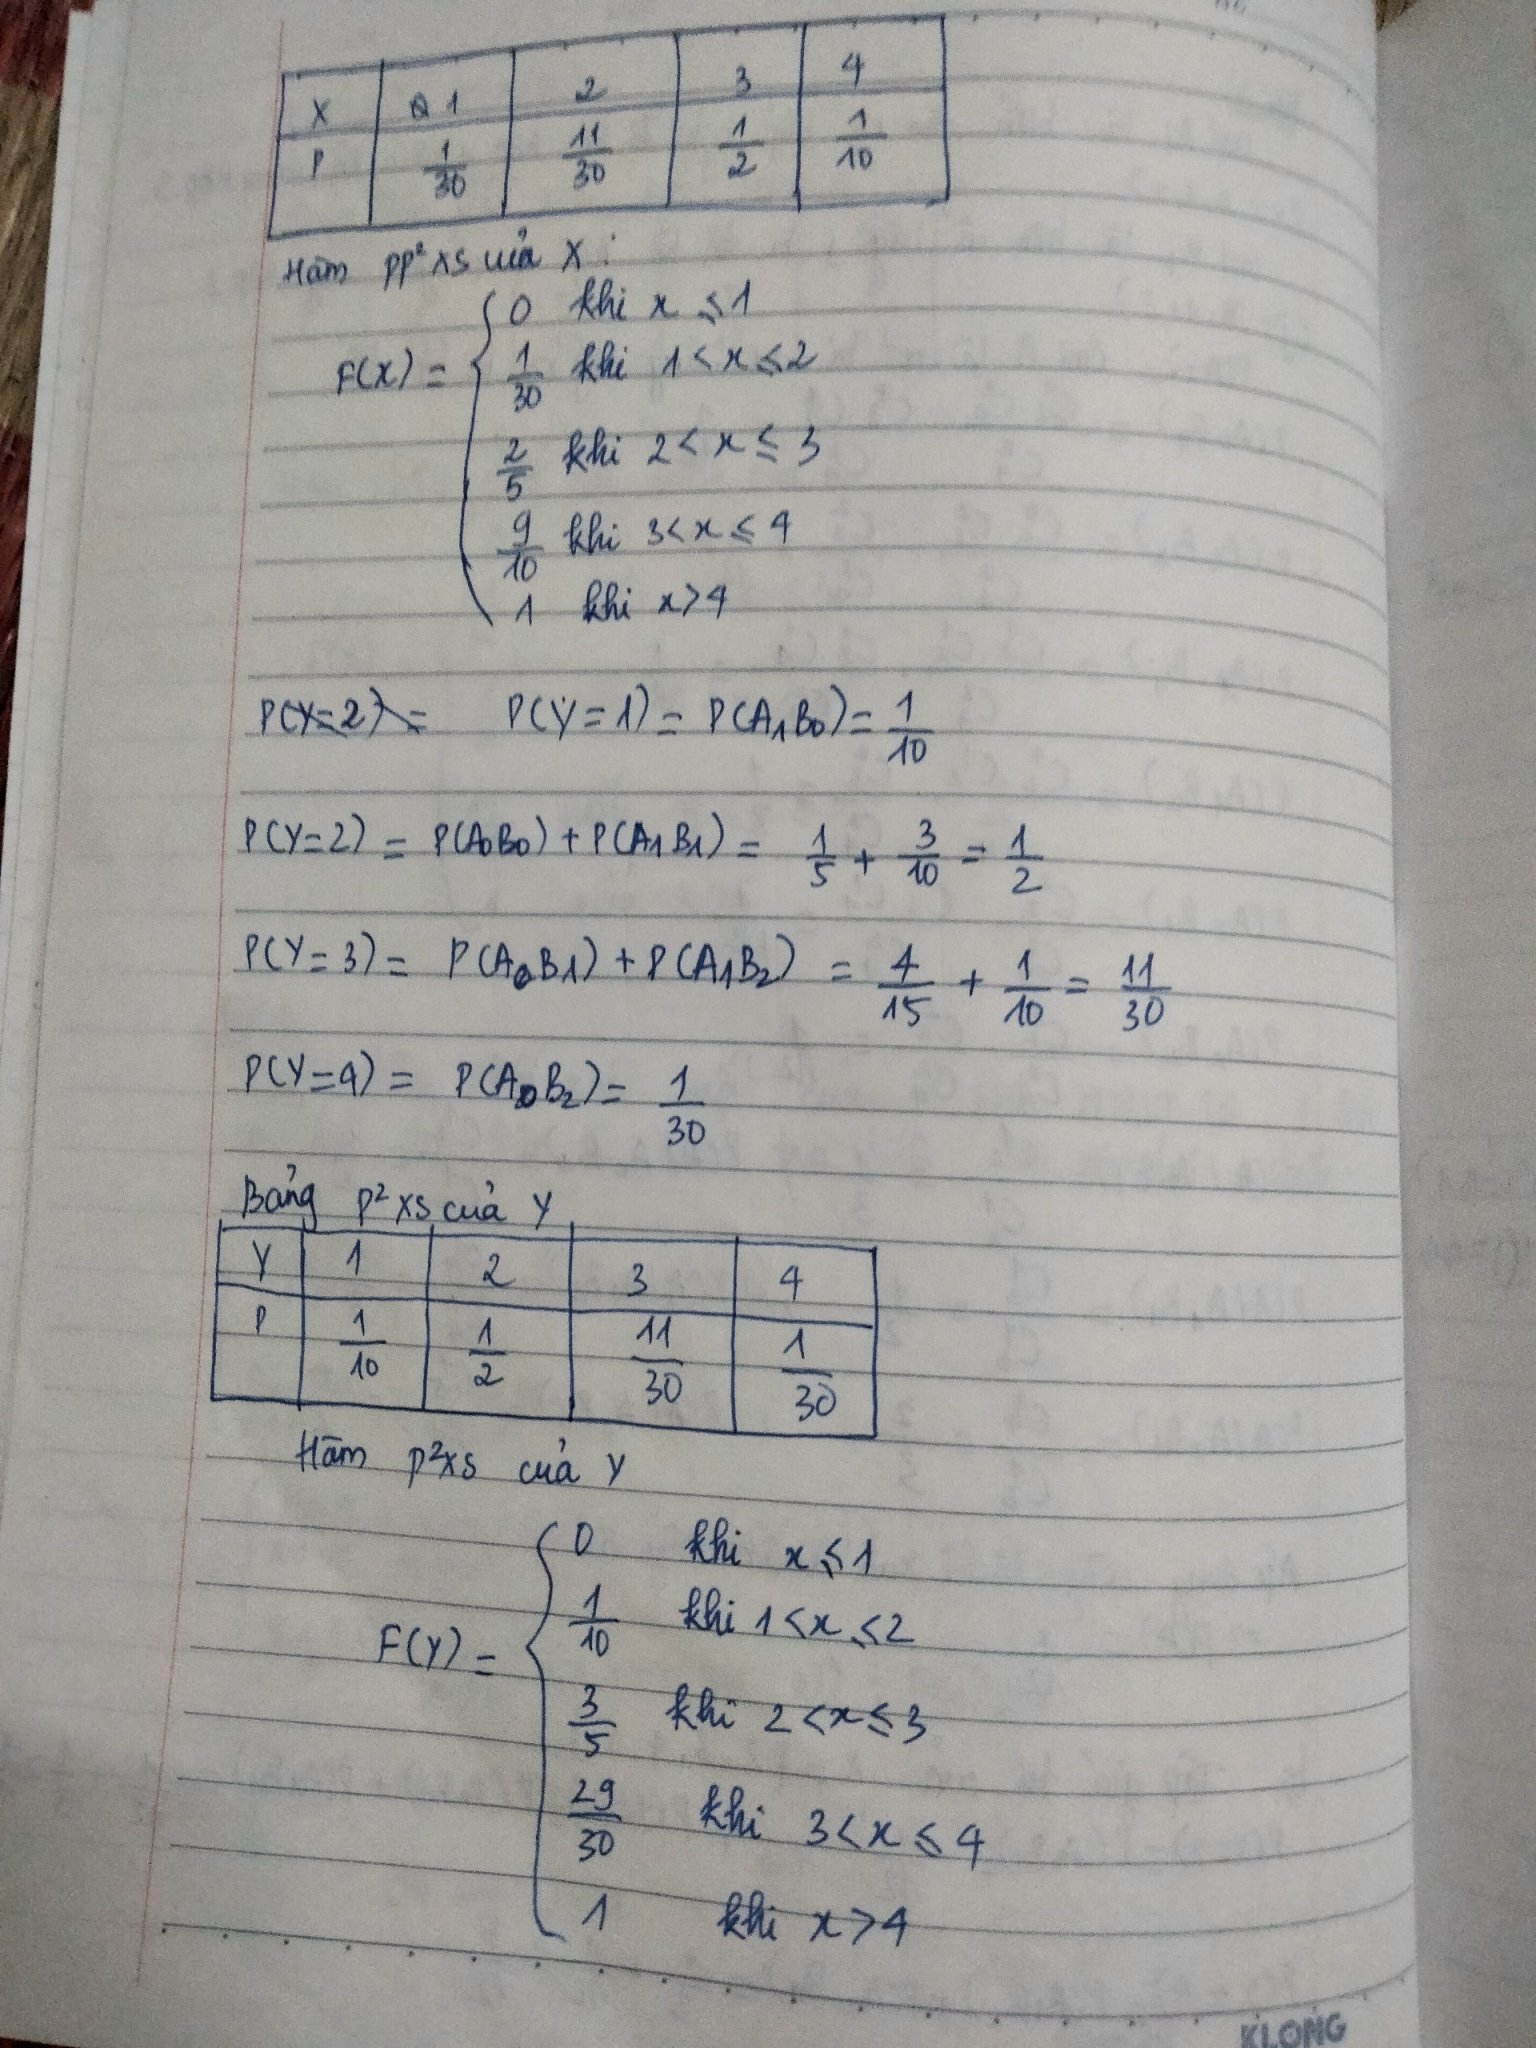 X 1 2 3 4
P 1/30 11/30 1/2 1/10
Hàm pp² XS của X :
F(X) = { 0 khi x ≤ 1
1/30 khi 1 < x ≤ 2
2/5 khi 2 < x ≤ 3
9/10 khi 3 < x ≤ 4
1 khi x > 4
P(Y=2) = P(Y=1) = P(A₁B₀) = 1/10
P(Y=2) = P(A₀B₀) + P(A₁B₁) = 1/5 + 3/10 = 1/2
P(Y=3) = P(A₀B₁) + P(A₁B₂) = 4/15 + 1/10 = 11/30
P(Y=4) = P(A₀B₂) = 1/30
Bảng P² XS của Y
Y 1 2 3 4
P 1/10 1/2 11/30 1/30
Hàm p²xs của Y
F(Y) = { 0 khi x ≤ 1
1/10 khi 1 < x ≤ 2
3/5 khi 2 < x ≤ 3
29/30 khi 3 < x ≤ 4
1 khi x > 4
KLONG